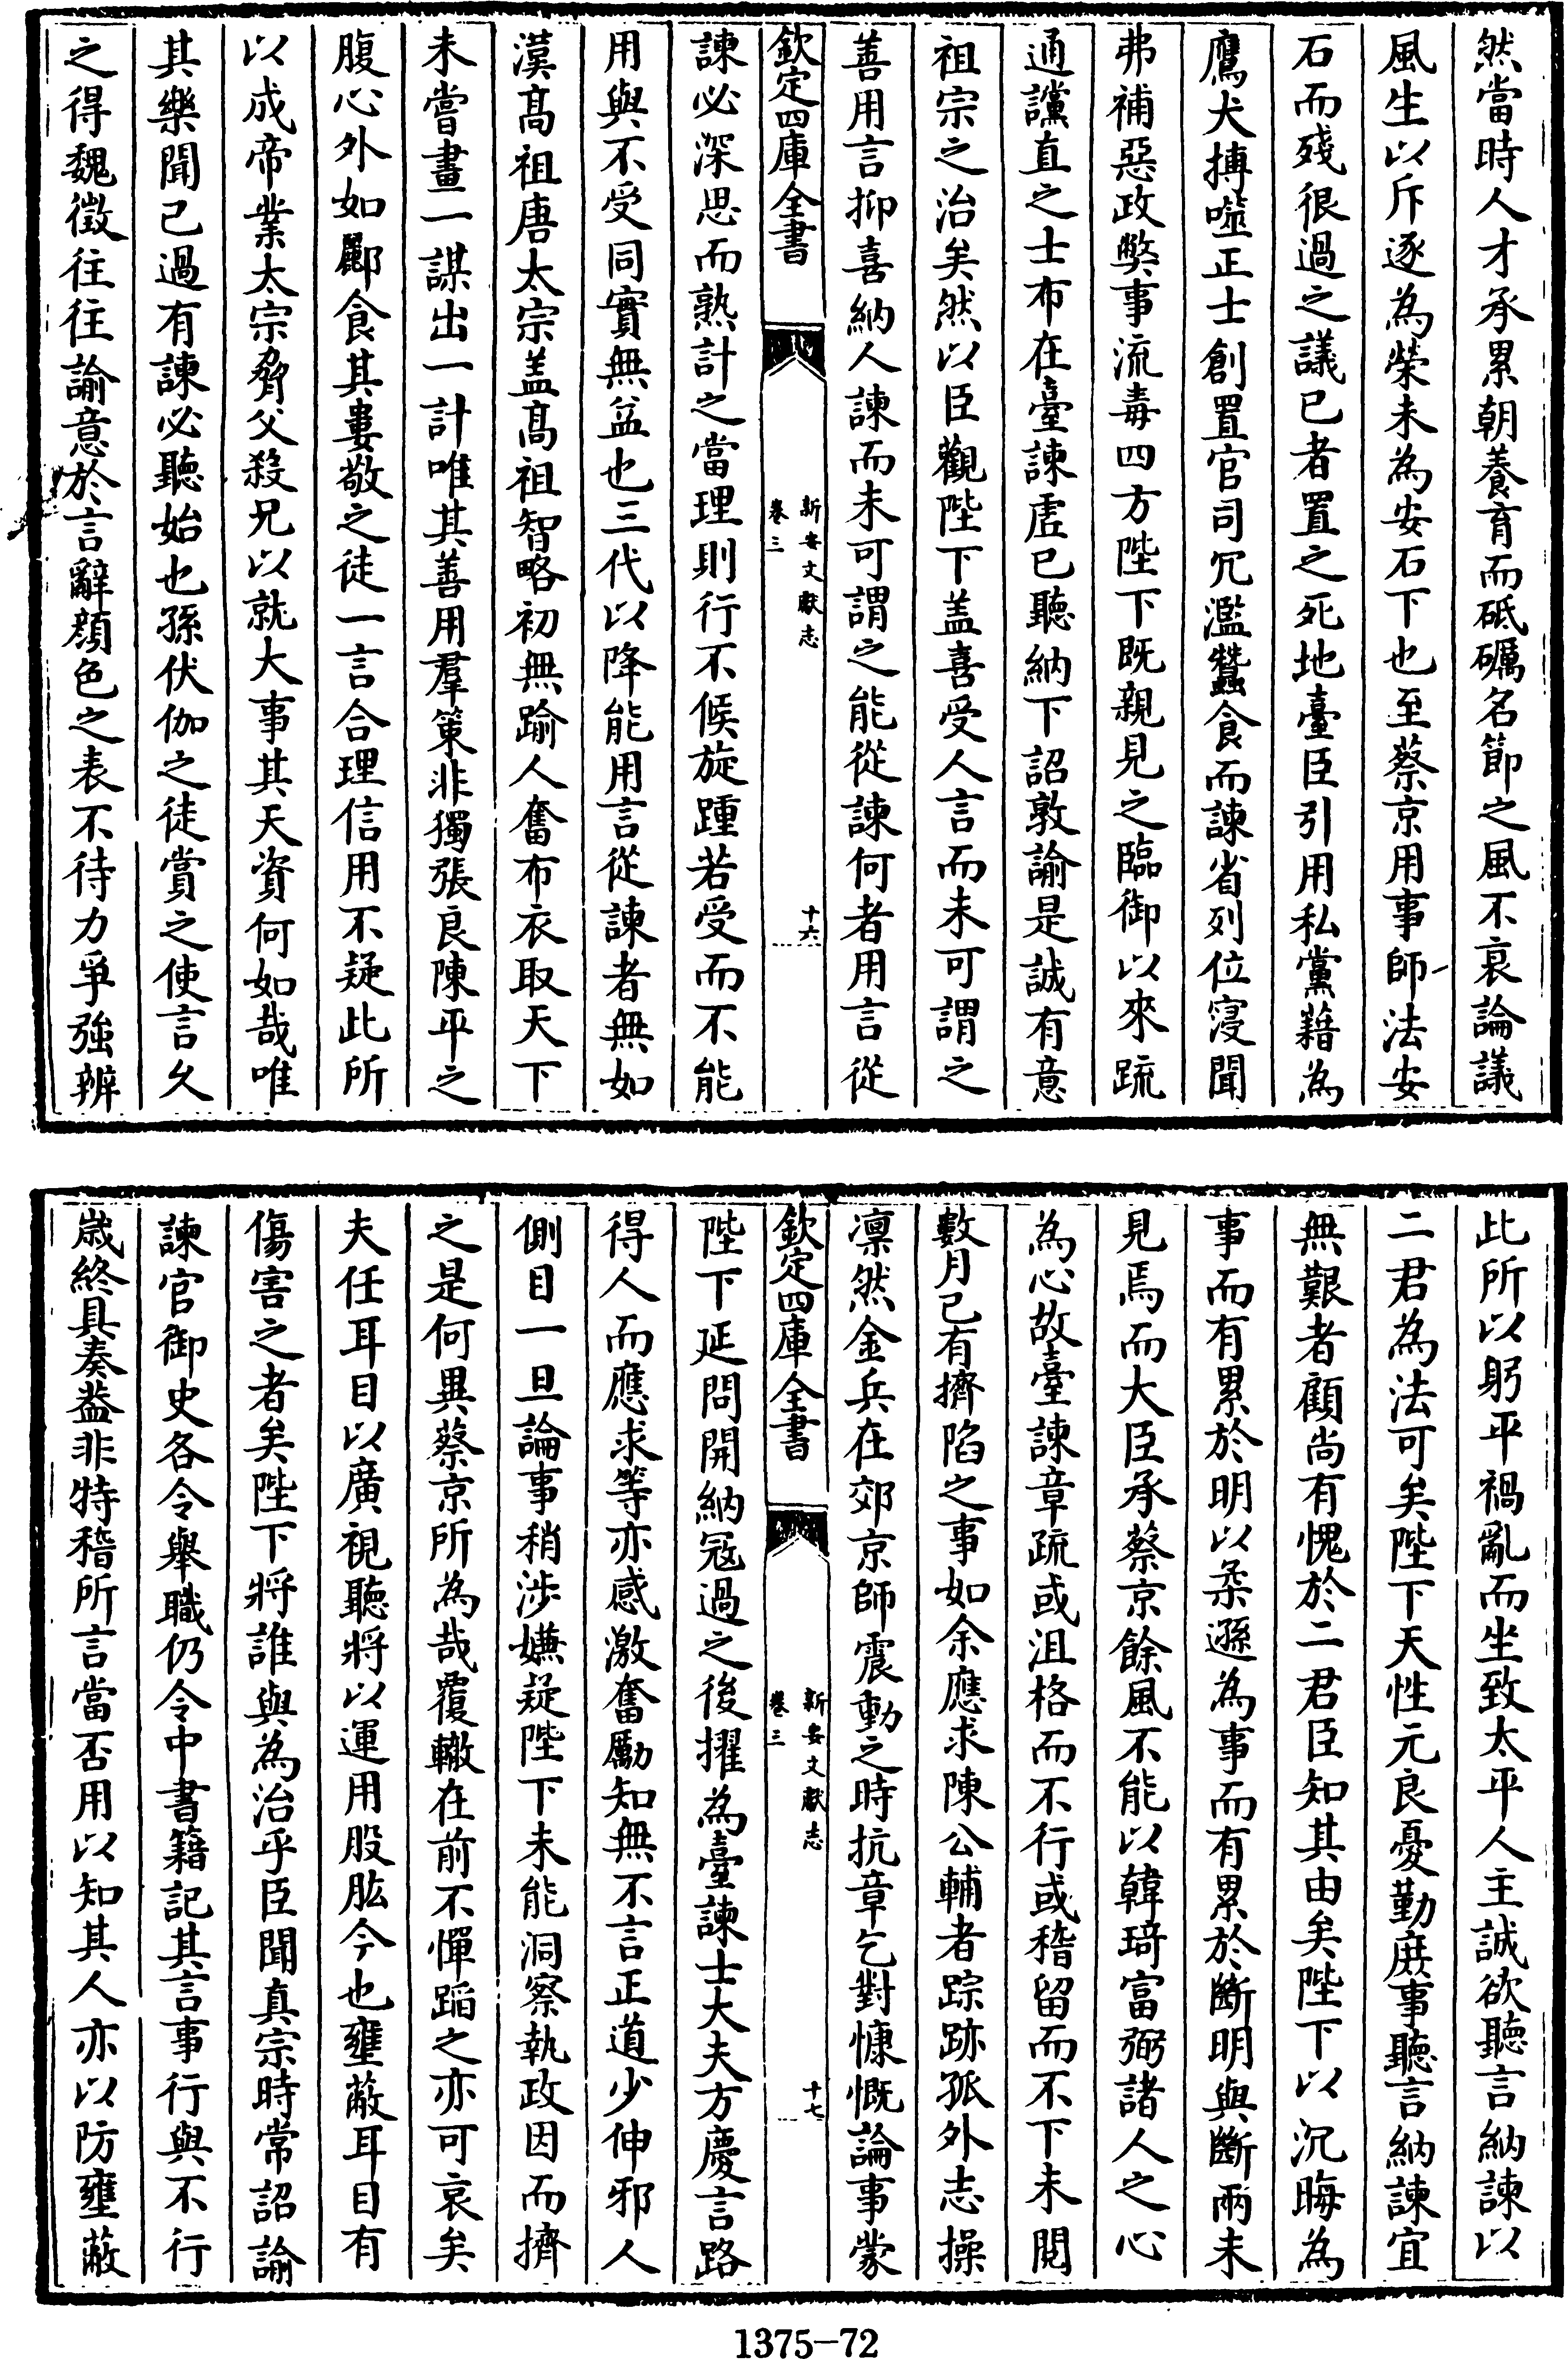 然當時人才承累朝養育而砥礪名節之風不衰論議
風生以斥逐為榮未為安石下也至蔡京用事師法安
石而殘很過之議己者置之死地臺臣引用私黨藉為
鷹犬搏噬正士創置官司冗濫蠶食而諫省列位寖聞
弗補惡政弊事流毒四方陛下既親見之臨御以來疏
通讜直之士布在臺諫虛已聽納下詔敦諭是誠有意
祖宗之治矣然以臣觀陛下盖喜受人言而未可謂之
善用言抑喜納人諫而未可謂之能從諫何者用言從
欽定四庫全書
新安文獻志
卷三
十六
諫必深思而熟計之當理則行不候旋踵若受而不能
用與不受同實無益也三代以降能用言從諫者無如
漢髙祖唐太宗盖髙祖智略初無踰人奮布衣取天下
未嘗畫一謀出一計唯其善用羣策非獨張良陳平之
腹心外如酈食其婁敬之徒一言合理信用不疑此所
以成帝業太宗脅父殺兄以就大事其天資何如哉唯
其樂聞己過有諫必聽始也孫伏伽之徒賞之使言久
之得魏徵往往諭意於言辭顔色之表不待力爭強辨
此所以躬平禍亂而坐致太平人主誠欲聽言納諫以
二君為法可矣陛下天性元良憂勤庶事聽言納諫宜
無艱者顧尚有愧於二君臣知其由矣陛下以沉晦為
事而有累於明以柔遜為事而有累於斷明與斷兩未
見焉而大臣承蔡京餘風不能以韓琦富弼諸人之心
為心故臺諫章疏或沮格而不行或稽留而不下未閲
數月已有擠陷之事如余應求陳公輔者踪跡孤外志操
凛然金兵在郊京師震動之時抗章乞對慷慨論事蒙
欽定四庫全書
新安文獻志
卷三
十七
陛下延問開納冦過之後擢為臺諫士大夫方慶言路
得人而應求等亦感激奮勵知無不言正道少伸邪人
側目一旦論事稍涉嫌疑陛下未能洞察執政因而擠
之是何異蔡京所為哉覆轍在前不憚蹈之亦可哀矣
夫任耳目以廣視聽將以運用股肱今也壅蔽耳目有
傷害之者矣陛下將誰與為治乎臣聞真宗時常詔諭
諫官御史各令舉職仍令中書籍記其言事行與不行
嵗終具奏葢非特稽所言當否用以知其人亦以防壅蔽
1375-72